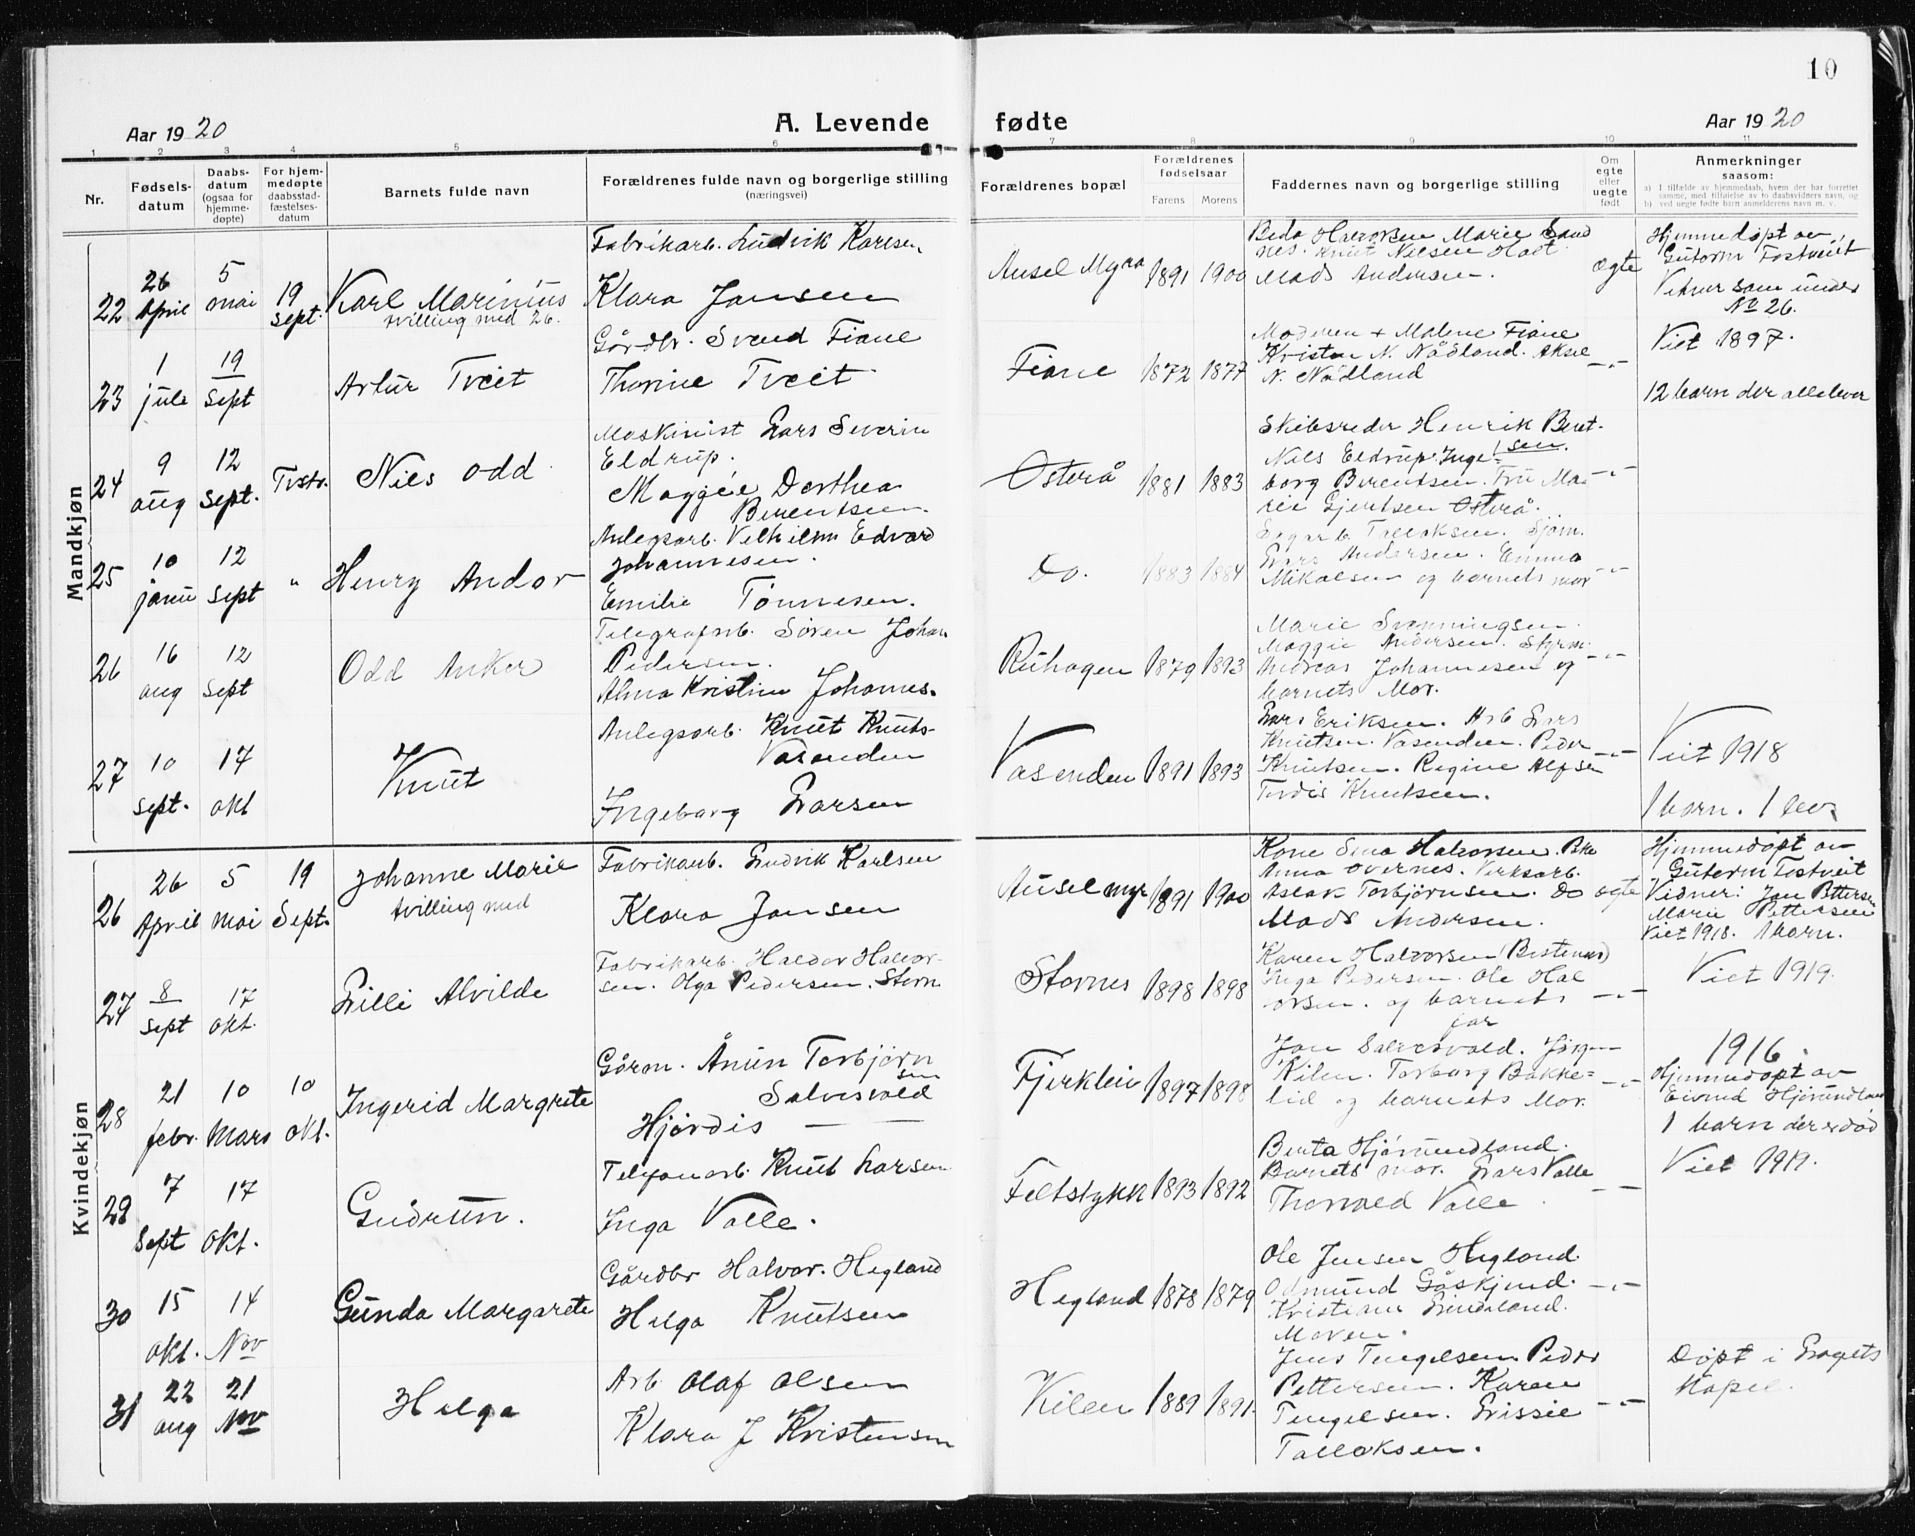 10
Aar 1920
A. Levende fødte
Aar 1920
1 2 3 4 5 6 7 8 9 10 11
Nr.
Fødsels-
datum
Daabs-
datum
(ogsaa for
hjemme-
døpte)
For hjem-
medøpte
daabsstad-
fæstelses-
datum
Barnets fulde navn
Forældrenes fulde navn og borgerlige stilling
(næringsvei)
Forældrenes bopæl
Forældrenes
fødselsaar
Farens Morens
Faddernes navn og borgerlige stilling
Om
egte
eller
uegte
født
Anmerkninger
saasom:
a) I tilfælde av hjemmedaab, hvem der har forrettet
samme, med tilføielse av to daabsvidners navn, og
b) ved uegte fødte barn anmelderens navn m. v.
Mandkjøn
22
26 April
5 mai
19 Sept.
Karl Marinius
tvilling med 26.
Fabrikarb. Ludvik Karlsen
Klara Jansen
Ausel Myra
1891 1900
Halvorsen Marie Sand
nes. Knut Nielsen
Mads Andersen.
ægte
Hjemmedøpt av
Gutorm Fostveit
Vitner som under
No 26.
23
1 juli
19 Sept
Artur Tveit
Gårdbr. Svend Fiane
Thorine Tveit
Fiane
1872 1877
Moderen + Malene Fiane
Kristen N. Nådland. Aksel
N. Nådland
- " -
Viet 1897.
12 barn der alle lever
24
9 aug
12 Sept.
Nils Odd
Maskinist Lars Severin
Eldrup.
Maggie Dorthea
Berentsen.
Osterå
1881 1883
Skibsreder Henrik Berent-
sen.
Nils Eldrup. Inge-
borg Berentsen. Fru Ma-
rie Gjertsen Osterå.
- " -
25
10 januu
12 Sept
"
Henry Andor
Anlegsarb. Vilhelm Edvard
Johannesen.
Emilie Tønnesen.
Do.
1883 1884
Tallaksen. Sjøm.
Lars Andersen. Emma
Mikalsen og barnets mor
- " -
26
16 aug
12 Sept
Odd Anker
Telegrafarb. Søren Johan
Pedersen.
Alma Kristine Johannes.
1879 1893
Marie Svenningsen.
Maggie Andersen. Styrm.
Andreas Johannesen og
barnets Mor.
- " -
27
10 Sept.
17 okt
Knut
Anlegsarb. Knut Knuts-
Vasenden
Ingeborg Larsen
Vasenden
1891 1893
Lars Eriksen. Arb Lars
Knutsen Vasenden. Peder
Knutsen. Regine Alfsen
Tordis Knutsen.
- " -
Viet 1918
1 barn. 1 lev.
Kvindekjøn
26
26 April
5 mai
19 Sept.
Johanne Marie
tvilling med
Fabrikarb. Ludvik Karlsen
Klara Jansen
Ausel myr
1891 1900
Kone Sina Halvorsen.
Anna Overnes. Verksarb.
Aslak Torbjørnsen. Do
Mads Andersen.
ægte
Hjemmedøpt av
Gutorm Fostveit
Vidner: Jan Petterse
Marie Pettersen
Viet 1918. 1 barn.
27
8 Sept
17 okt.
Lilli Alvilde
Fabrikarb. Haldor Halvor-
sen. Olga Pedersen. Storn
Stornes
1898 1898
Karen Halvorsen (Bestemor)
Inga Pedersen. Ole Hal
vorsen. og barnets
far
- " -
Viet 1919.
28
21 febr.
10 Mars
10 okt.
Ingerid Margrete
Gårdn. Ånun Torbjørn
sen
Salvesvold
Hjördis — —
Fjerkleiv
1897 1898
Jan Salvesvold. Jørgen
Kilen. Torborg Bakke-
lid og barnets Mor.
- " -
1916.
Hjemmedøpt av
Eivind Hjörundland
1 barn der er død
29
7 Sept
17 okt.
Gudrun.
Telefonarb. Knut Larsen
Inga Valle.
Feltstykk
1893 1892
Berta Hjörundland.
Barnets mor. Lars Valle
Thorvald Valle
- -
Viet 1919.
30
15 okt.
14 Nov
Gunda Margarete
Gårdbr Halvor. Hegland
Helga Knutsen
Hegland
1878 1879
Ole Jensen Hegland.
Odmund Gåskjend.
Kristiane Lindland.
Moren.
- " -
31
22 aug
21 Nov
Helga
Arb Olaf Olsen
Klara J Kristensen
Kilen
1889 1891.
Jens Tengelsen Peder
Pettersen. Karen
Tengelsen. Lissie
Tallaksen.
- " -
Døpt i
kapel.